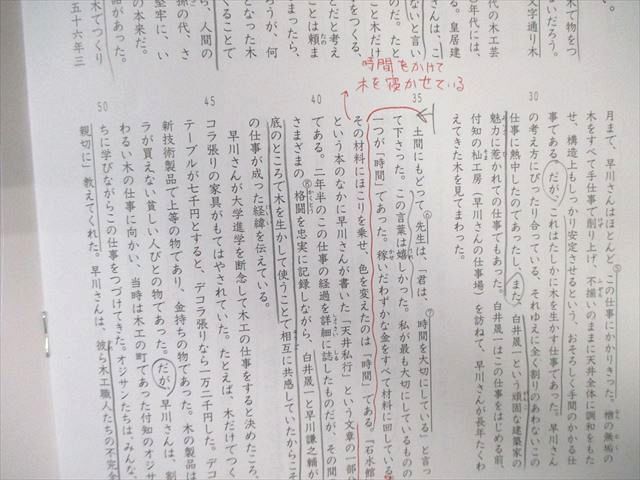 木で物をつ
いだろう。
文字通り木
代の木工芸
年代には、
る。皇居建
さんは、こ
ないと言い
こと木だけ
のだ。たと
をつくる、
だと考え
ことは頼ま
まったら、
ろうが、何
となった木
くることで
ら、人間の
孫の代、さ
堅牢に、い
の本来だ。
木でつくり
品があった。
五十六年三
時間をかけて
木を寝かせている
月まで、早川さんはほとんど、⑤この仕事にかかりきった。檜の無垢の
木をすべて手仕事で削り上げ、不揃いのままに天井全体に調和をもた
せ、構造上もしっかり安定させるという、おそろしく手間のかかる仕
30
事である。だが、これはたしかに木を生かす仕事であった。早川さん
の考え方にぴったり合っている。それゆえに全く割りのあわないこの
仕事に熱中したのであったし、また、白井晟一という頑固な建築家の
魅力に惹かれての仕事でもあった。白井晟一はこの仕事をはじめる前、
付知の杣工房（早川さんの仕事場）を訪ねて、早川さんが長年たくわ
35
えてきた木を見てまわった。
土間にもどって⑥先生は、「君は、⑦時間を大切にしている」と言っ
て下さった。この言葉は嬉しかった。私が最も大切にしているものの
一つが「時間」であった。稼いだわずかな金をすべて材料に回している。
その材料にほこりを乗せ、色を変えたのは「時間」である。『石水館』
40
という本のなかに早川さんが書いた「天井私行」という文章の一部分
である。二年半のこの仕事の経過を詳細に誌したものだが、その間の
さまざまの⑧格闘を忠実に記録しながら、白井晟一と早川謙之輔が
底のところで木を生かして使うことで相互に共感していたからこそ
の仕事が成った経緯を伝えている。
45
早川さんが大学進学を断念して木工の仕事をすると決めたころ、
コラ張りの家具がもてはやされていた。たとえば、木だけでつく
テーブルが七千円とすると、デコラ張りなら一万二千円した。デコ
新技術製品で上等の物であり、金持ちの物であった。木の製品は
ラが買えない貧しい人びとの物であった。だが、早川さんは、割
50
わるい木の仕事に向かい、当時は木工の町であった付知のオジサ
ちに学びながらこの仕事をつづけてきた。オジサンたちは、みんな、
親切に」教えてくれた。早川さんは、彼ら木工職人たちの不完全